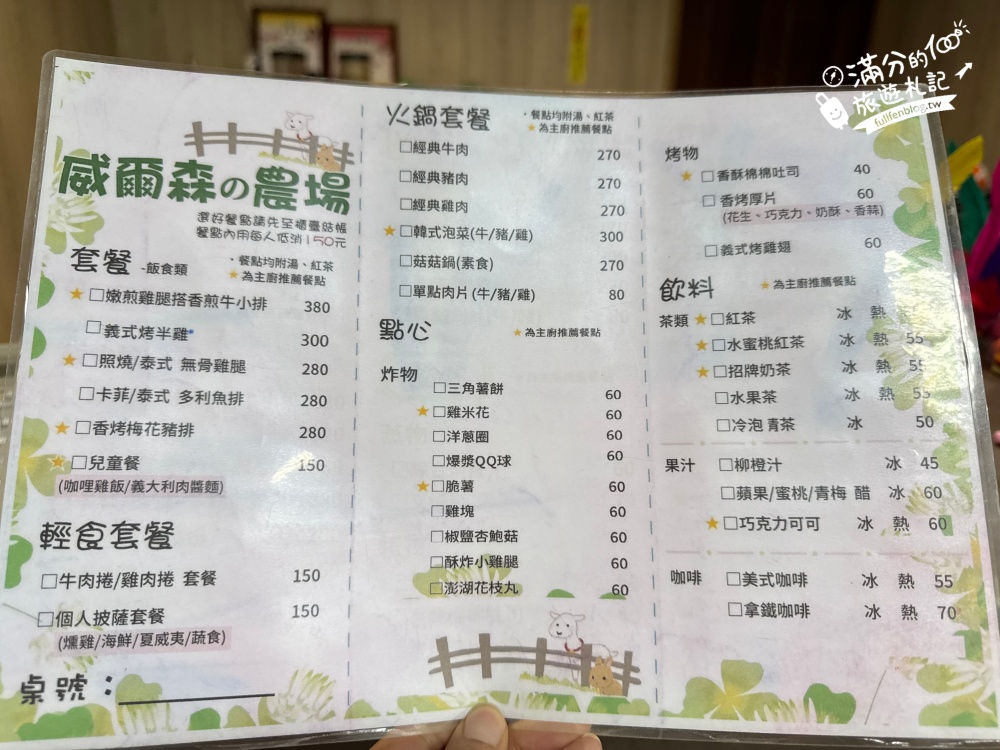 滿分的100%
旅遊札記
fullfenblog.tw
威爾森の農場
選好餐點請先至櫃臺結帳
餐點內用每人低消150元
套餐 -飯食類
・餐點均附湯、紅茶
★為主廚推薦餐點
★□嫩煎雞腿搭香煎牛小排 380
□義式烤半雞 300
★□照燒/泰式 無骨雞腿 280
□卡菲/泰式 多利魚排 280
★□香烤梅花豬排 280
★□兒童餐 150
(咖哩雞飯/義大利肉醬麵)
輕食套餐
□牛肉捲/雞肉捲 套餐 150
□個人披薩套餐 150
(燻雞/海鮮/夏威夷/蔬食)
桌號：
火鍋套餐
・餐點均附湯、紅茶
★為主廚推薦餐點
□經典牛肉 270
□經典豬肉 270
□經典雞肉 270
★□韓式泡菜(牛/豬/雞) 300
□菇菇鍋(素食) 270
□單點肉片(牛/豬/雞) 80
點心 ★為主廚推薦餐點
炸物
□三角薯餅 60
★□雞米花 60
□洋蔥圈 60
□爆漿QQ球 60
★□脆薯 60
□雞塊 60
□椒鹽杏鮑菇 60
□酥炸小雞腿 60
□澎湖花枝丸 60
烤物
★□香酥棉棉吐司 40
□香烤厚片 60
(花生、巧克力、奶酥、香蒜)
□義式烤雞翅 60
飲料 ★為主廚推薦餐點
茶類 ★□紅茶 冰 熱
★□水蜜桃紅茶 冰 熱 55
★□招牌奶茶 冰 熱 55
□水果茶 冰 熱 55
□冷泡 青茶 冰 50
果汁 □柳橙汁 冰 45
□蘋果/蜜桃/青梅 醋 冰 60
★□巧克力可可 冰 熱 60
咖啡 □美式咖啡 冰 熱 55
□拿鐵咖啡 冰 熱 70